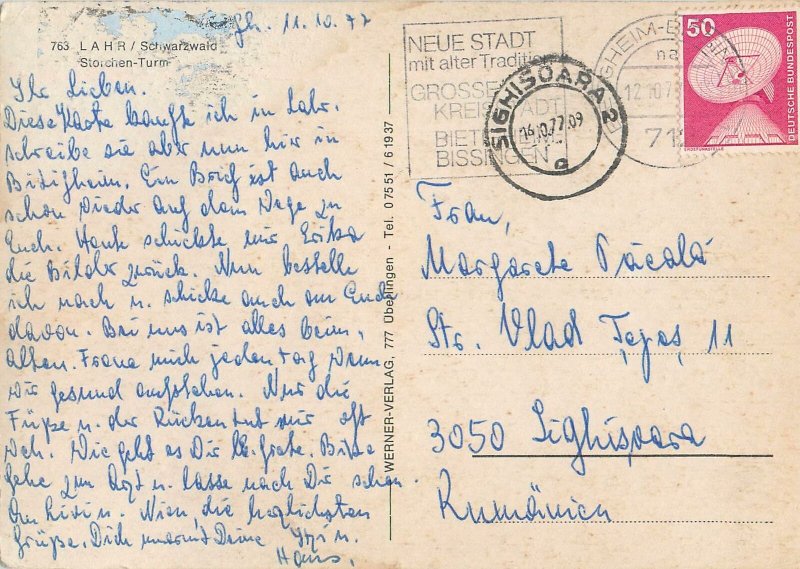 gh. 11.10.77
763 LAHR / Schwarzwald
Storchen-Turm
Ihr Lieben.
Diese Karte kaufte ich in Lahr.
schreibe sie aber nun hier in
Bitigheim. Ein Brief ist auch
schon wieder auf dem Wege zu
Euch. Heute schickte mir Erika
die Bilder zurück. Nun bestelle
ich nach u. schicke auch am Ende
davon. Bei uns ist alles beim,
alten. Freue mich jeden tag wenn
wir gesund aufstehen. Nur die
Füße u. der Rücken tut mir oft
weh. Wie geht es Dir lb. Grete. Bitte
gehe zum Arzt u. lasse nach Dir schauen
u. die herzlichsten
Grüße. Dich umarmt Deine
Hans.
WERNER-VERLAG, 777 Überlingen - Tel. 07551/61937
NEUE STADT
mit alter Tradition
GROSSE
KREISSTADT
BIETIGHEIM
BISSINGEN
SIGHISOARA 2
16.10.77.09
a
GHEIM-B
na
12.10.7
712
50
DEUTSCHE BUNDESPOST
ERDEFUNKSTELLE
Frau,
Margarete Păcală
Str. Vlad Țepeș 11
3050 Sighișoara
Rumänien